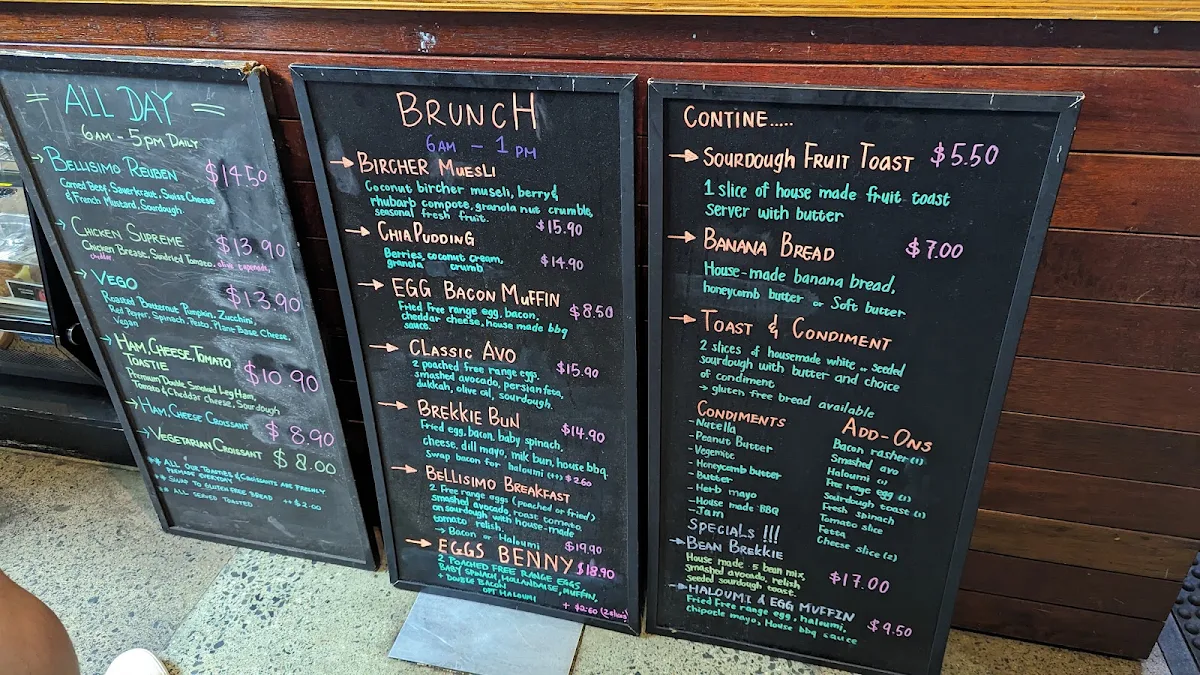 ALL DAY
6AM - 5PM DAILY
BELLISIMO REUBEN $14.50
Corned Beef, Sauerkraut, Swiss Cheese
& French Mustard, Sourdough
CHICKEN SUPREME $13.90
Chicken Breast, Sundried Tomato,
cheddar
VEGO $13.90
Roasted Butternut Pumpkin, Zucchini,
Red Pepper, Spinach, Pesto, Plant Base Cheese,
Vegan
HAM, CHEESE, TOMATO
TOASTIE $10.90
Premium Double Smoked Leg Ham,
Tomato & Cheddar cheese, Sourdough
HAM, CHEESE CROISSANT $8.90
VEGETARIAN CROISSANT $8.00
** ALL OUR TOASTIES & CROISSANTS ARE FRESHLY
PREMADE EVERYDAY
** SWAP TO GLUTEN FREE BREAD ++$2.00
** ALL SERVED TOASTED
BRUNCH
6AM - 1PM
→ BIRCHER MUESLI
Coconut bircher museli, berry&
rhubarb compote, granola nut crumble,
seasonal fresh fruit. $15.90
→ CHIA PUDDING
Berries, coconut cream,
granola crumb $14.90
→ EGG BACON MUFFIN $8.50
Fried free range egg, bacon,
cheddar cheese, house made bbq
sauce.
→ CLASSIC AVO
2 poached free range eggs. $15.90
smashed avocado, persian feta,
dukkah, olive oil, sourdough.
→ BREKKIE BUN
Fried egg, bacon, baby spinach, $14.90
cheese, dill mayo, milk bun, house bbq.
Swap bacon for haloumi (++) $2.60
→ BELLISIMO BREAKFAST
2 Free range eggs (poached or fried)
smashed avocado, roast tomato,
on sourdough with house-made
tomato relish.
→ Bacon or Haloumi $19.90
→ EGGS BENNY $18.90
2 POACHED FREE RANGE EGGS
BABY SPINACH, HOLLANDAISE, MUFFIN,
+ DOUBLE BACON
OPT HALOUMI
+ $2.60
CONTINE.....
→ SOURDOUGH FRUIT TOAST $5.50
1 slice of house made fruit toast
server with butter
→ BANANA BREAD $7.00
House-made banana bread,
honeycomb butter or Soft butter
→ TOAST & CONDIMENT
2 slices of housemade white or seeded
sourdough with butter and choice
of condiment
→ gluten free bread available
CONDIMENTS
- Nutella
- Peanut Butter
- Vegemite
- Honeycomb butter
- Butter
- Herb mayo
- House made BBQ
- Jam
ADD-ONS
Bacon rasher (1)
Smashed avo
Haloumi (1)
Free range egg (1)
Sourdough toast (1)
Fresh spinach
Tomato slice
Fetta
Cheese slice (2)
SPECIALS !!!
→ BEAN BREKKIE
House made 5 bean mix,
Smashed avocado, relish, $17.00
seeded sourdough toast.
→ HALOUMI & EGG MUFFIN
Fried Free range egg, haloumi, $9.50
Chipotle mayo, House bbq sauce